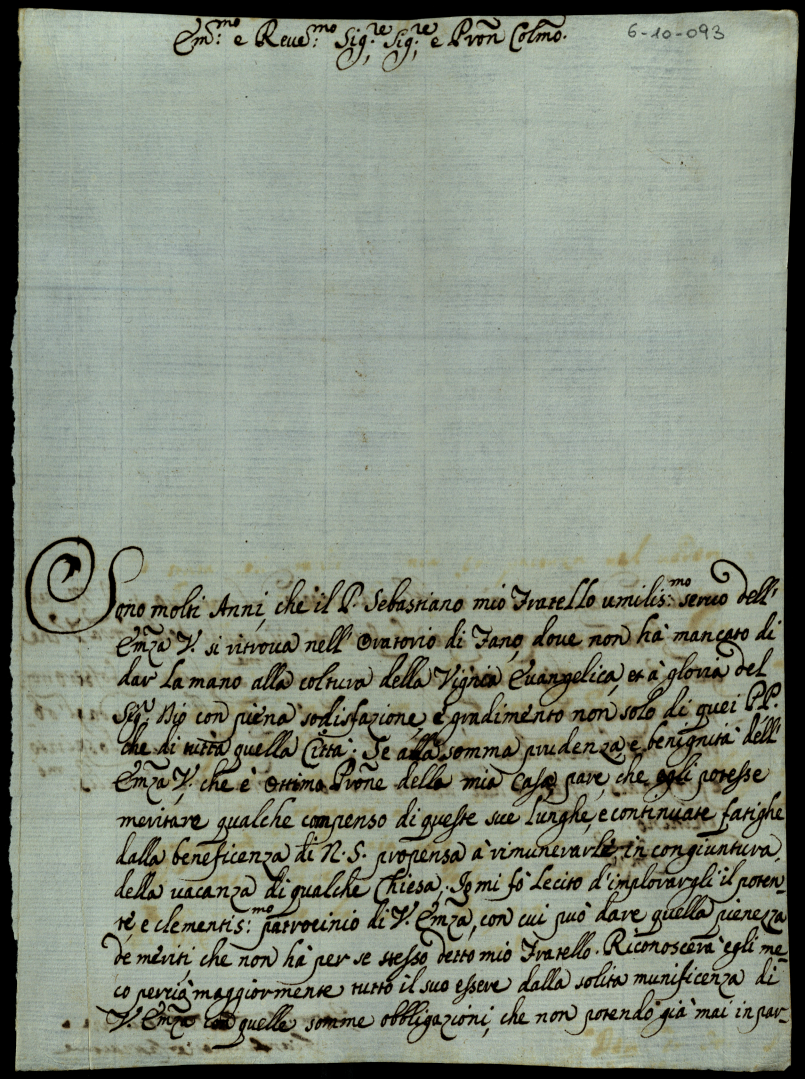 Em:mo e Reue:mo Sig:re Sig:re e Pron Colmo.
6-10-093
Sono molti Anni, che il P. Sebastiano mio Fratello umilis:mo seruo dell'
Emza V. si ritroua nell' Oratorio di Fano, doue non hà mancato di
dar la mano alla coltura della Vigna Euangelica, et à gloria del
Sigr. Dio con piena sodisfazione, e gradimento non solo di quei PP.
che di tutta quella Città. Se alla somma prudenza, e benignità dell'
Emza V., che è Ottimo Prone della mia Casa pare, che egli potesse
meritare qualche compenso di queste sue lunghe, e continuate fatighe
dalla beneficenza di N. S. propensa à rimunerarle in congiuntura
della uacanza di qualche Chiesa, Io mi fò lecito d'implorargli il poten-
te, e clementis:mo patrocinio di V. Emza, con cui può dare quella pienezza
de meriti, che non hà per se stesso detto mio Fratello. Riconoscerà egli me-
co perciò maggiormente tutto il suo essere dalla solita munificenza di
V. Emza con quelle somme obbligazioni, che non potendo già mai in par-